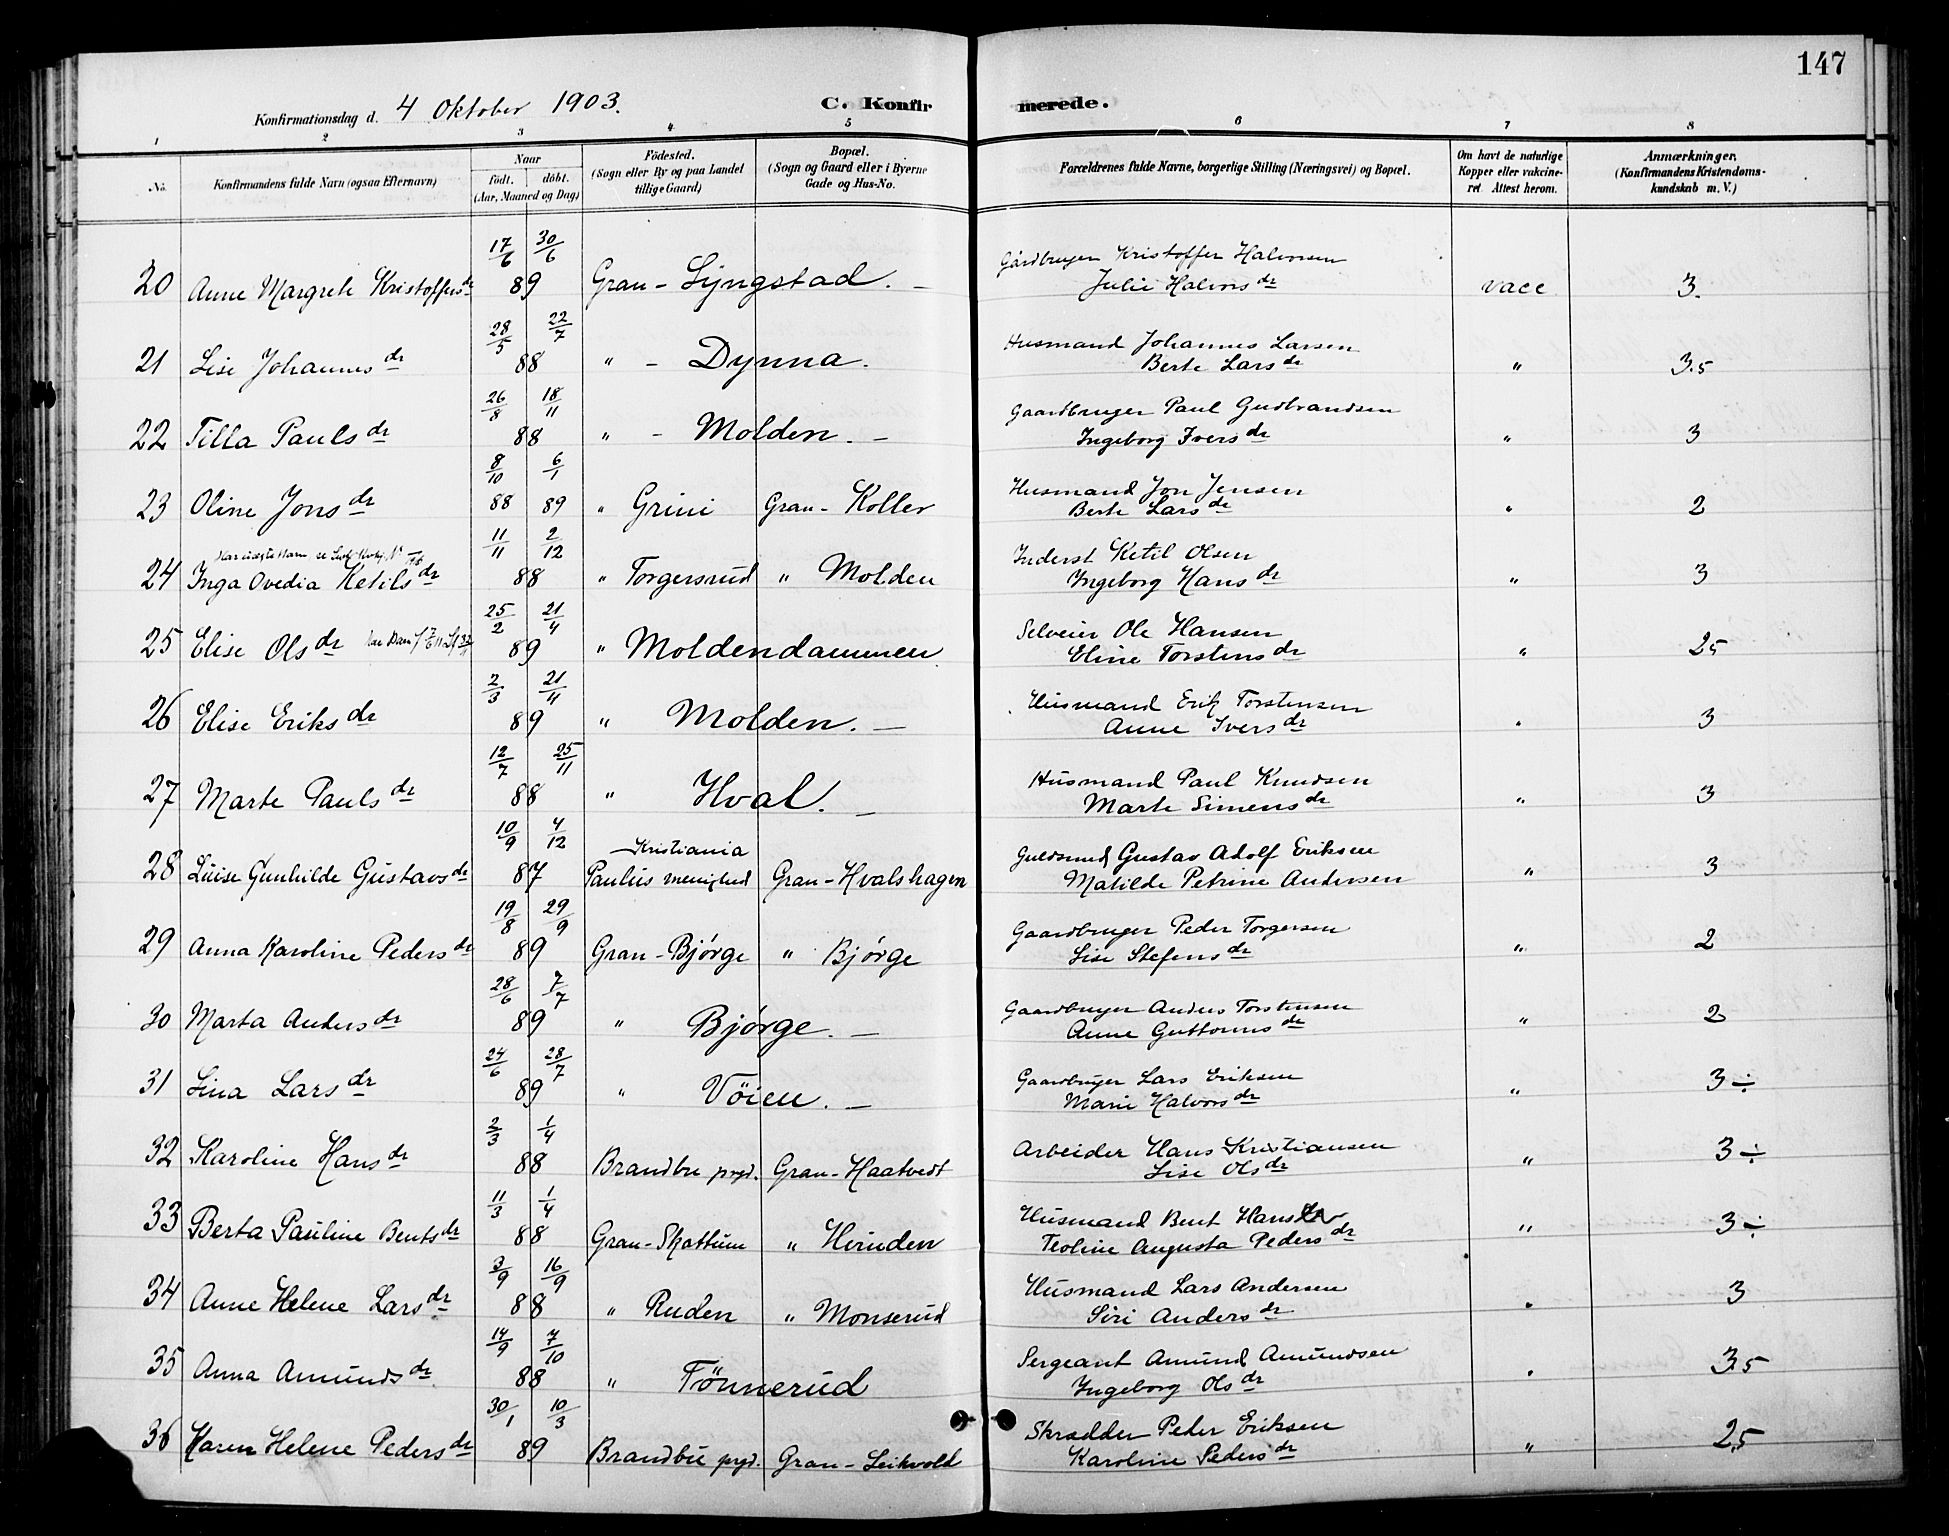 147
Konfirmationsdag d. 4 Oktober 1903. C. Konfirmerede.
1 2 3 4 5 6 7 8
No. Konfirmandens fulde Navn (ogsaa Efternavn) Naar födt. döbt. (Aar, Maaned og Dag) Födested. (Sogn eller By og paa Landet tillige Gaard) Bopæl. (Sogn og Gaard eller i Byerne Gade og Hus-No. Forældrenes fulde Navne, borgerlige Stilling (Næringsvei) og Bopæl. Om havt de naturlige Kopper eller vakcineret. Attest herom. Anmærkninger. (Konfirmandens Kristendomskundskab m. V.)
17/6 30/6 Gårdbruger Kristoffer Halvorsen
20 Anne Margrete Kristoffersdr 89 Gran - Lyngstad. - Julie Halvorsdr vacc 3.
28/5 22/7 Husmand Johannes Larsen
21 Lise Johannesdr 88 " - Dynna. Berte Larsdr " 3.5
26/8 18/11 Gaardbruger Paul Gudbrandsen
22 Tilla Paulsdr 88 " - Molden. - Ingeborg Iversdr " 3
8/10 6/1 Husmand Jon Jensen
23 Oline Jonsdr 88 89 " Grini Gran - Koller Berte Larsdr " 2
11/11 2/12 Inderst Ketil Olsen
24 Inga Ovedia Ketilsdr 88 " Torgersrud " Molden Ingeborg Hansdr " 3
25/2 21/4 Selveier Ole Hansen
25 Elise Olsdr 89 " Moldendammen Eline Torstensdr " 2,5
2/3 21/11 Husmand Erik Torstensen
26 Elise Eriksdr 89 " Molden. - Anne Iversdr " 3
12/7 25/11 Husmand Paul Knudsen
27 Marte Paulsdr 88 " Hval. - Marte Simensdr " 3
10/9 4/12 Kristiania Guldsmed Gustav Adolf Eriksen
28 Luise Gunhilde Gustavsdr 87 Paulus menighed Gran - Hvalshagen Matilde Petrine Andersen " 3
19/8 29/9 Gaardbruger Peder Torgersen
29 Anna Karoline Pedersdr 89 Gran - Bjørge " Bjørge Lise Stefensdr " 2
28/6 7/7 Gaardbruger Anders Torstensen
30 Marta Andersdr 89 " Bjørge. - Anne Guttormsdr " 2
24/6 28/7 Gaardbruger Lars Eriksen
31 Lina Larsdr 89 " Vöien. - Marie Halvorsdr " 3 ÷
2/3 1/4 Arbeider Hans Kristiansen
32 Karoline Hansdr 88 Brandbu prgd. Gran - Haatvedt Lise Olsdr " 3 ÷
11/3 1/4 Husmand Bent Hans
33 Berta Pauline Bentsdr 88 Gran - Skattum " Hvinden Teoline Augusta Pedersdr " 3 ÷
3/9 16/9 Husmand Lars Andersen
34 Anne Helene Larsdr 88 " Ruden " Monserud Siri Andersdr " 3
14/9 7/10 Sergeant Amund Amundsen
35 Anna Amundsdr 88 " Tönnerud Ingeborg Olsdr " 3.5
30/1 10/3 Skrædder Peder Eriksen
36 Karen Helene Pedersdr 89 Brandbu prgd. Gran - Leikvold Karoline Pedersdr " 2,5